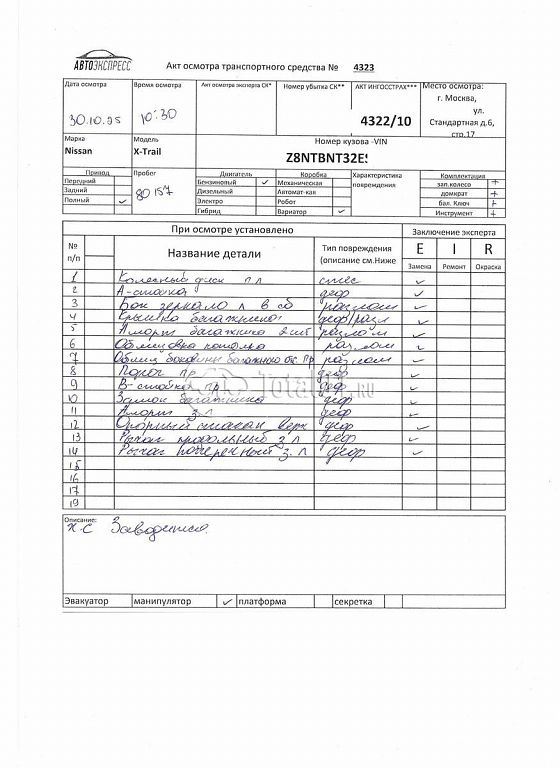 АВТОЭКСПРЕСС
Акт осмотра транспортного средства № 4323
Дата осмотра Время осмотра Акт осмотра эксперта СК* Номер убытка СК** АКТ ИНГОССТРАХ*** Место осмотра:
30.10.25 10:30 4322/10 г. Москва,
ул.
Стандартная д.6,
стр.17
Марка Модель Номер кузова -VIN
Nissan X-Trail Z8NTBNT32E
Привод Пробег Двигатель Коробка Характеристика повреждения Комплектация
Передний 80157 Бензиновый ✓ Механическая зап.колесо +
Задний Дизельный Автомат-кая домкрат +
Полный ✓ Электро Робот бал. Ключ +
Гибрид Вариатор ✓ Инструмент +
При осмотре установлено Заключение эксперта
№ п/п Название детали Тип повреждения (описание см.Ниже E I R
Замена Ремонт Окраска
1 Колесный диск п л ✓
2 А-стойка деф ✓
3 Бок зеркало л в сб разлом ✓
4 Крышка багажника деф/разл ✓
5 Аморт багажника 2 шт разлом ✓
6 Обшивка потолка разлом ✓
7 Обшив боковины багажного отс. пр разлом ✓
8 Порог пр деф ✓
9 В-стойка пр деф ✓
10 Замок багажника деф ✓
11 Аморт з.л деф ✓
12 Опорный стакан верх деф ✓
13 Рычаг продольный з л деф ✓
14 Рычаг поперечный з. л деф ✓
15
16
17
19
Total .RU
Описание:
Х-С Заводится.
Эвакуатор манипулятор ✓ платформа секретка